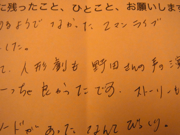 に残ったこと、ひとこと、お願いします
るようでなかった
した。
て、人形劇も 野田さんの声の
っちゃ良かったです。ストーリーも
ードがあったなんてびっくり。